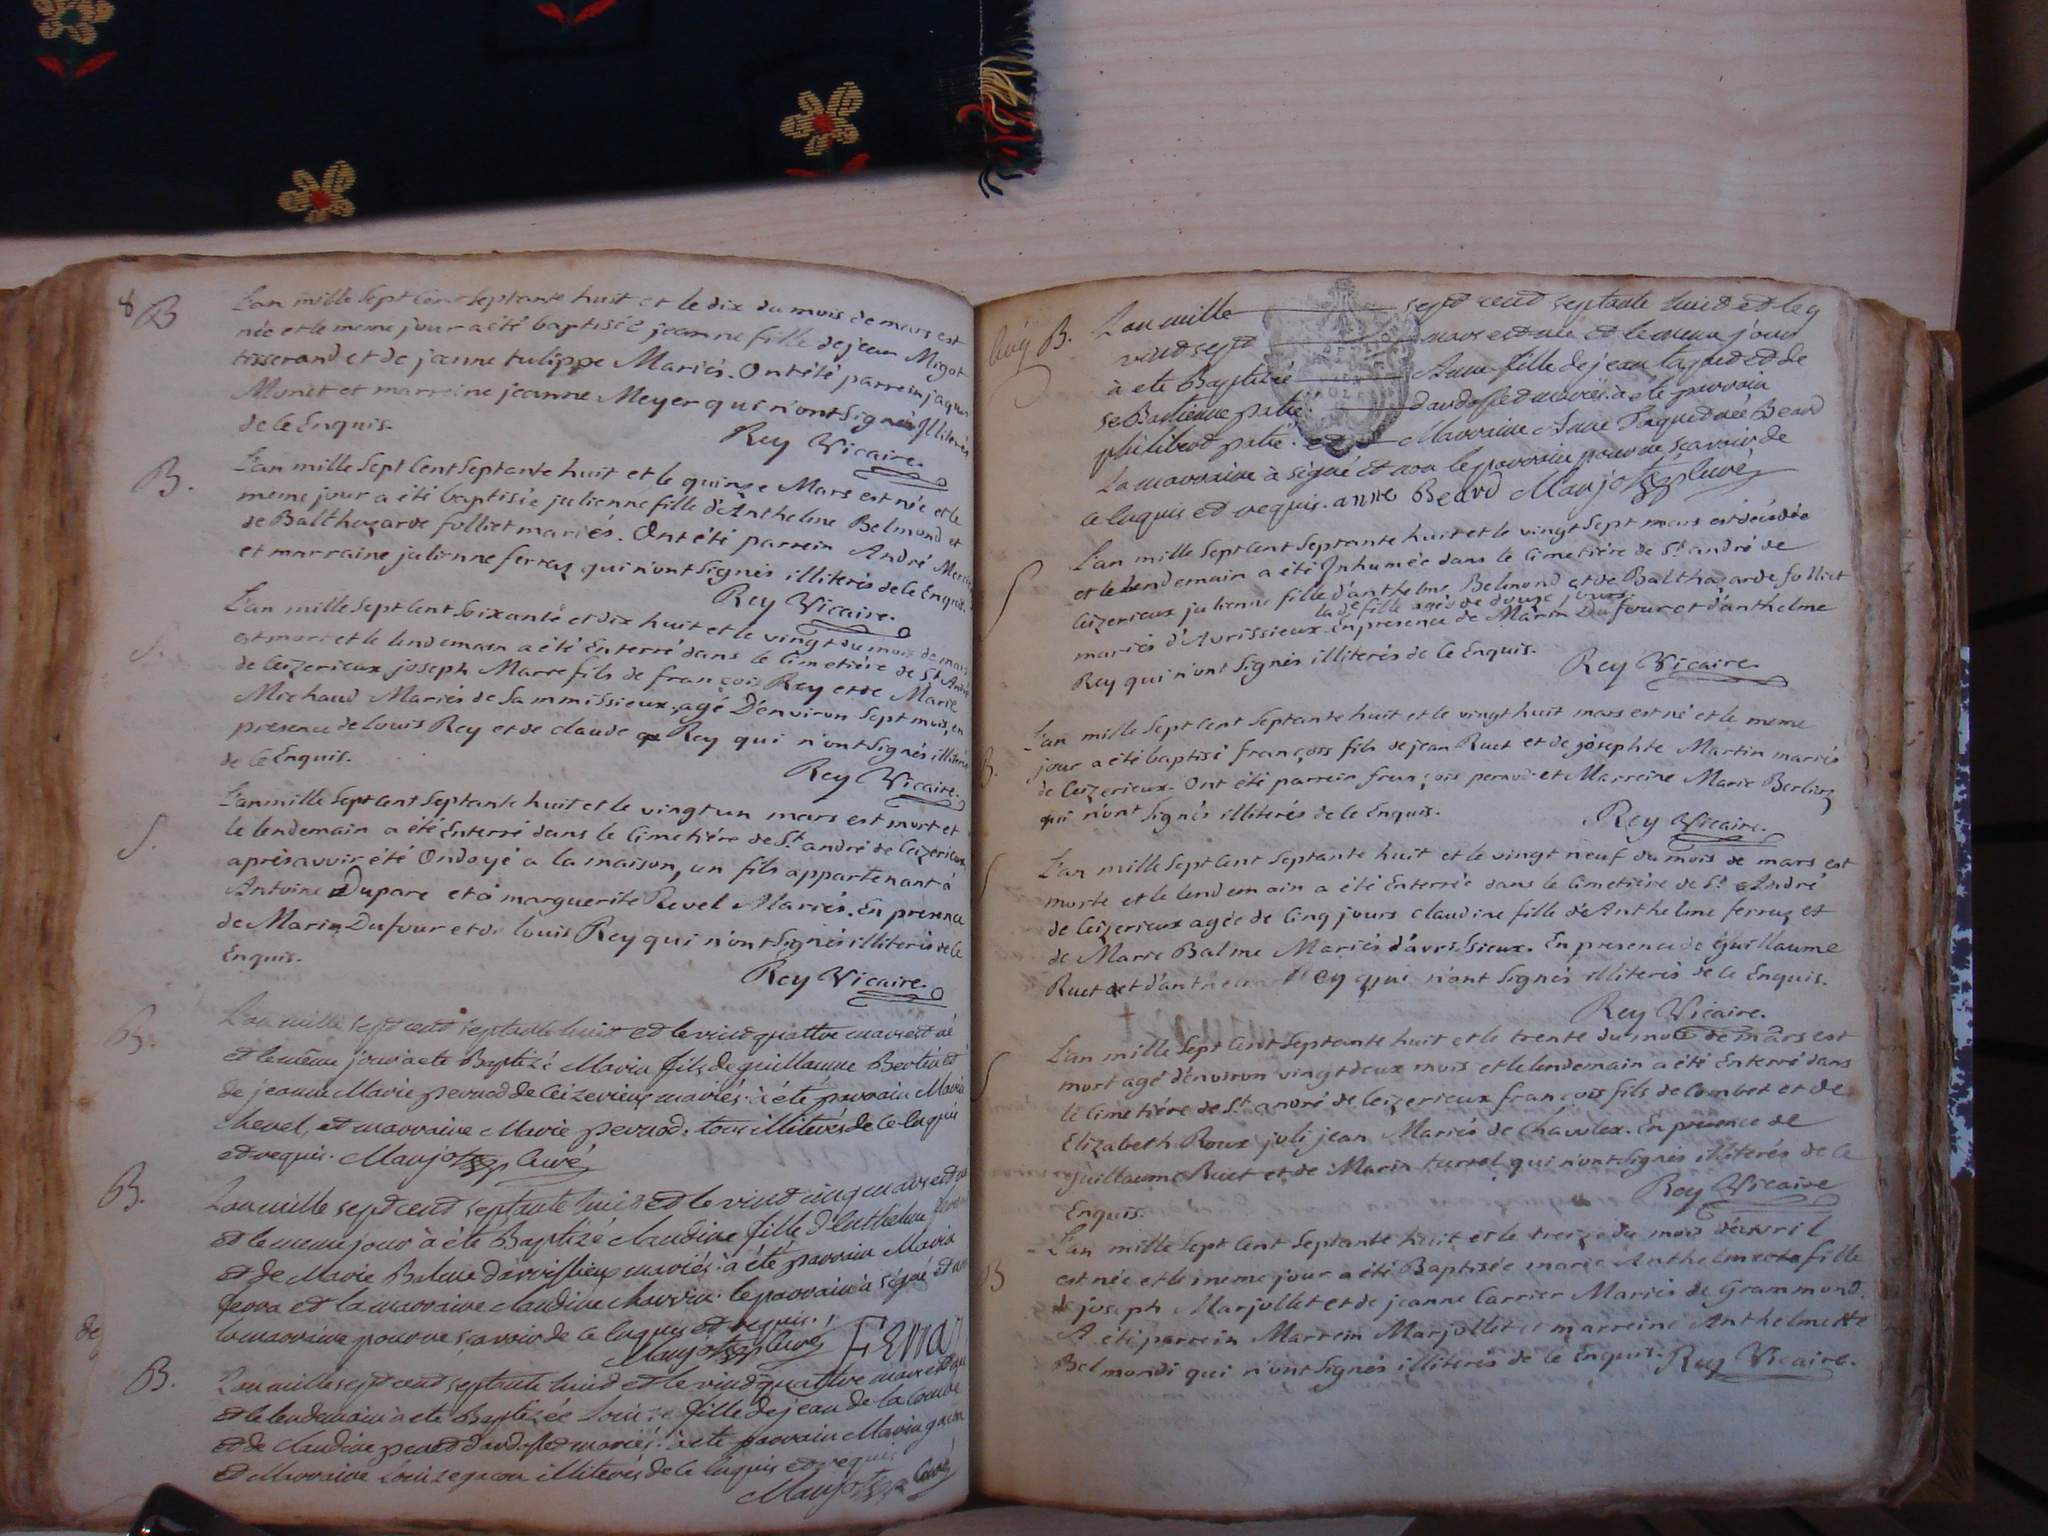 8 B L'an mille sept cent septante huit et le dix du mois de mars est
née et le meme jour a été baptisée jeanne fille de jean Migot
tisserand et de jeanne tulippe Mariés. Ont été parrein jaques
Monet et marreine jeanne Meyer qui n'ont signés illiterés
de ce Enquis.
Rey Vicaire.
B. L'an mille sept Cent septante huit et le quinze Mars est née et le
meme jour a été baptisée julienne fille d'Anthelme Belmond et
de Balthazarde folliet mariés. Ont été parrein André
et marraine julienne ferraz qui n'ont signés illiterés de ce Enquis.
Rey Vicaire.
S. L'an mille sept Cent soixante et dix huit et le vingt du mois de mars
est mort et le lendemain a été Enterré dans le Cimetière de St André
de Ceizerieux joseph Marre fils de françois Rey et de Marie
Michaud Mariés de Sammissieux, agé D'environ sept mois, en
presence de louis Rey et de claude Rey qui n'ont signés illiterés
de ce Enquis.
Rey Vicaire.
S. L'an mille sept Cent septante huit et le vingt un mars est mort et
le lendemain a été Enterré dans le Cimetière de St andré de Ceizerieux
après avoir été Ondoyé a la maison, un fils appartenant à
Antoine Dupare et à marguerite Revel Mariés. En presence
de Marin Dufour et de louis Rey qui n'ont signés illiterés de ce
Enquis.
Rey Vicaire.
B. L'an mille sept cent septante huit et le vint quattre mars est né
et le même jour a ete Baptizé Marin fils de guillaume Bertin et
de jeanne Marie pernod de Ceizerieux mariés. à été parrain Marin
Chevel, et marraine Marie pernod. tous illiterés de ce enquis
et requis. Marjollet Curé
B. L'an mille sept cent septante huit et le vint cinq mars est née
et le meme jour à été Baptizé claudine fille d'Anthelme
et de Marie Balme d'avrissieux mariés. à été parrain Marin
ferra et la marraine claudine le parrain à signé et non
la marraine pour ne sçavoir de ce enquis et requis.
Marjollet curé
B. L'an mille sept cent septante huit et le vint quattre mars est née
et le lendemain à ete Baptizée Louise fille de jean de la Combe
et de claudine mariés. à ete parrain Marin gacon
et Marraine Louise gacon illiterés de ce enquis et requis
Marjollet Curé
B. L'an mille sept cent septante huit et le
vint sept mars est née et le meme jour
à ete Baptizée Anne fille de jean taquet et de
seBastienne patié. mariés. à été parrain
philibert patié. et Marraine Anne Béard
La marraine à signé et non le parrain pour ne sçavoir de
ce enquis et requis. anne Beard Marjollet curé
S L'an mille sept Cent septante huit et le vingt sept mars est décédée
et le lendemain a été Inhumée dans le Cimetière de St andré de
Ceizerieux julienne fille d'anthelme Belmond et de Balthazarde folliet
la de fille agée de douze jours.
mariés d'Avrissieux. En presence de Marin Dufour et d'anthelme
Rey qui n'ont signés illiterés de ce Enquis.
Rey Vicaire.
B. L'an mille sept Cent septante huit et le vingt huit mars est né et le meme
jour a été baptisé françois fils de jean Ruet et de josephte Martin mariés
de Ceizerieux. Ont été parrein françois pernod et Marreine Marie Berlioz
qui n'ont signés illiterés de ce Enquis.
Rey Vicaire.
S L'an mille sept Cent septante huit et le vingt neuf du mois de mars est
morte et le lendemain a été Enterrée dans le Cimetière de St André
de Ceizerieux agée de Cinq jours claudine fille de Anthelme ferraz et
de Marie Balme Mariés d'avrissieux. En presence de Guillaume
Ruet et d'anthelme Rey qui n'ont signés illiterés de ce Enquis.
Rey Vicaire.
S L'an mille sept Cent septante huit et le trente du mois de mars est
mort agé d'environ vingt deux mois et le lendemain a été Enterré dans
le Cimetière de St andré de Ceizerieux françois fils de Combet et de
Elizabeth Roux joli jean Mariés de Chavolex. En presence de
Guillaume Ruet et de Marin turrel qui n'ont signés illiterés de ce
Enquis.
Rey Vicaire
B L'an mille sept Cent septante huit et le treize du mois d'avril
est née et le meme jour a été Baptisée marie Anthelmette fille
de joseph Marjollet et de jeanne Carrier Mariés de Grammond.
A été parrein Marrein Marjollet et marreine Anthelmette
Belmondi qui n'ont signés illiterés de ce Enquis. Rey Vicaire.